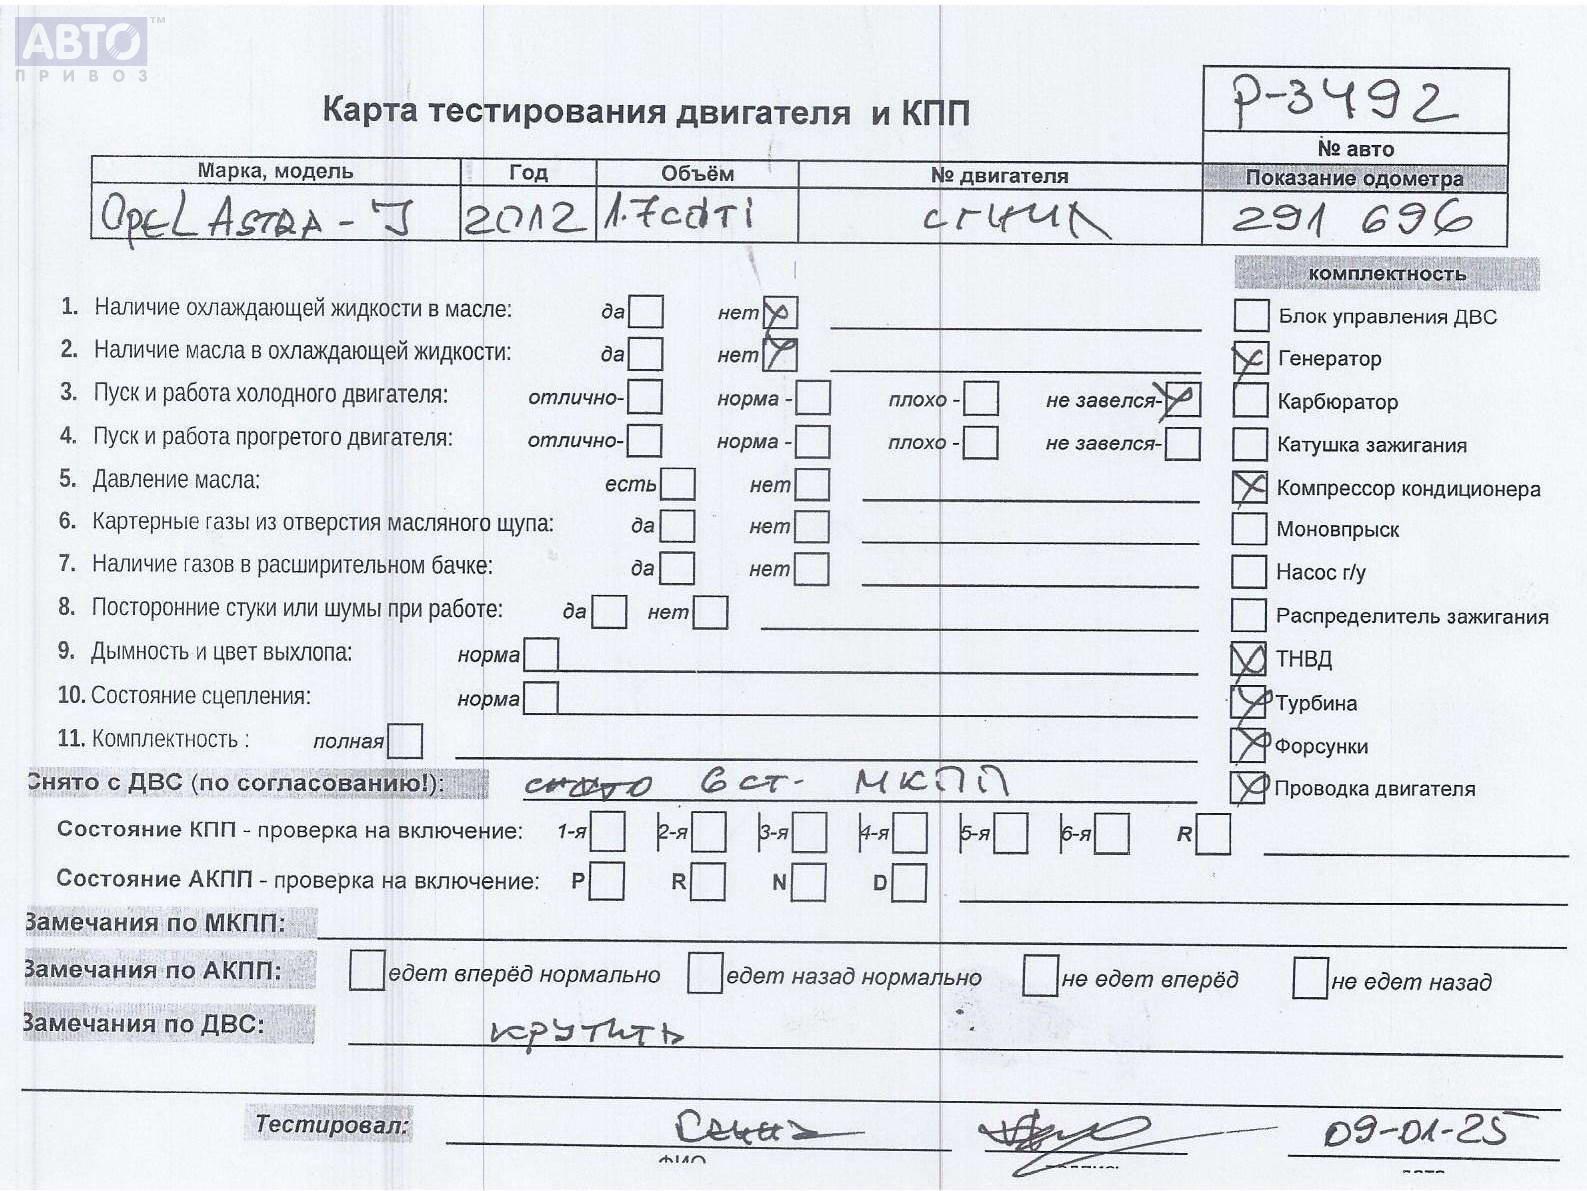 АВТО™
ПРИВОЗ
Карта тестирования двигателя и КПП
P-3492
№ авто
Марка, модель Год Объём № двигателя Показание одометра
OPEL ASTRA - J 2012 1.7cdti 291 696
комплектность
1. Наличие охлаждающей жидкости в масле: да нет
Блок управления ДВС
2. Наличие масла в охлаждающей жидкости: да нет
Генератор
3. Пуск и работа холодного двигателя: отлично- норма - плохо - не завелся-
Карбюратор
4. Пуск и работа прогретого двигателя: отлично- норма - плохо - не завелся-
Катушка зажигания
5. Давление масла: есть нет
Компрессор кондиционера
6. Картерные газы из отверстия масляного щупа: да нет
Моновпрыск
7. Наличие газов в расширительном бачке: да нет
Насос г/у
8. Посторонние стуки или шумы при работе: да нет
Распределитель зажигания
9. Дымность и цвет выхлопа: норма
ТНВД
10. Состояние сцепления: норма
Турбина
11. Комплектность : полная
Форсунки
Снято с ДВС (по согласованию!): 6 ст- МКПП
Проводка двигателя
Состояние КПП - проверка на включение: 1-я 2-я 3-я 4-я 5-я 6-я R
Состояние АКПП - проверка на включение: P R N D
Замечания по МКПП:
Замечания по АКПП: едет вперёд нормально едет назад нормально не едет вперёд не едет назад
Замечания по ДВС: крутить
Тестировал: 09-01-25
ФИО подпись дата